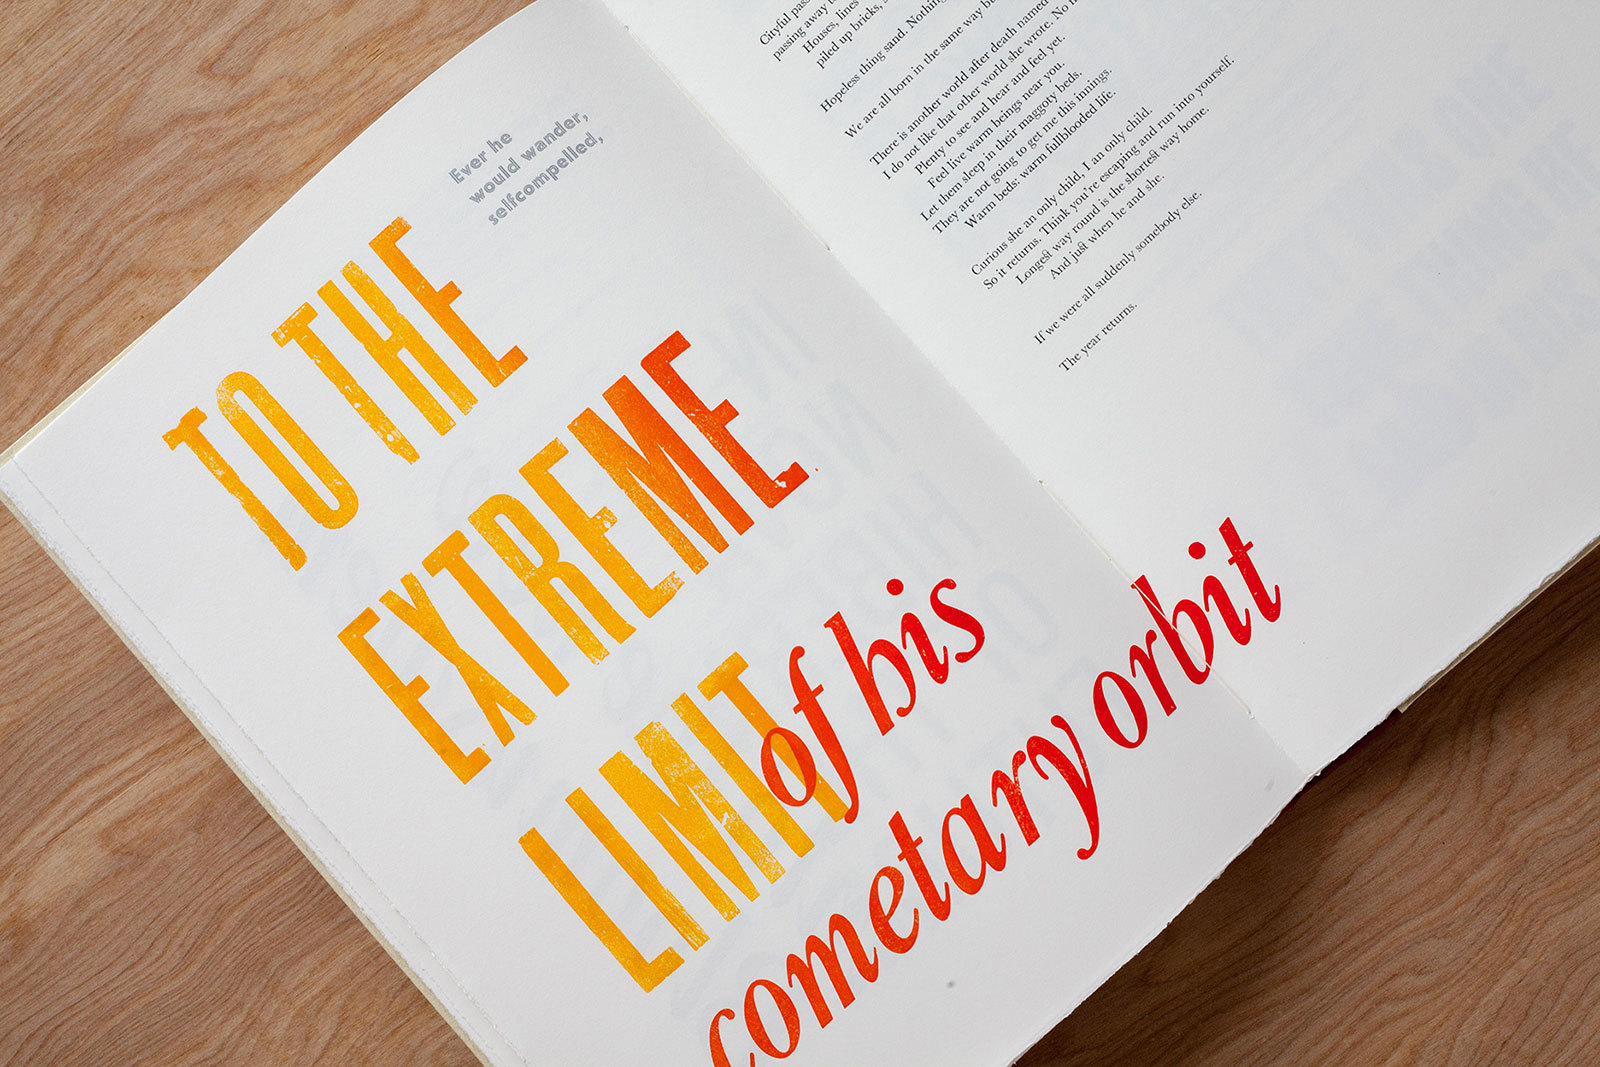 Ever he
would wander,
selfcompelled,
TO THE
EXTREME
LIMIT
of his
cometary orbit
Cityful pas
passing away
Houses, lines
piled up bricks,
Hopeless thing sand. Nothing
We are all born in the same way
There is another world after death named
I do not like that other world she wrote. No
Plenty to see and hear and feel yet.
Feel live warm beings near you.
Let them sleep in their maggoty beds.
They are not going to get me this innings.
Warm beds: warm fullblooded life.
Curious she an only child, I am an only child.
So it returns. Think you're escaping and run into yourself.
Longest way round is the shortest way home.
And just when he and she.
If we were all suddenly somebody else.
The year returns.